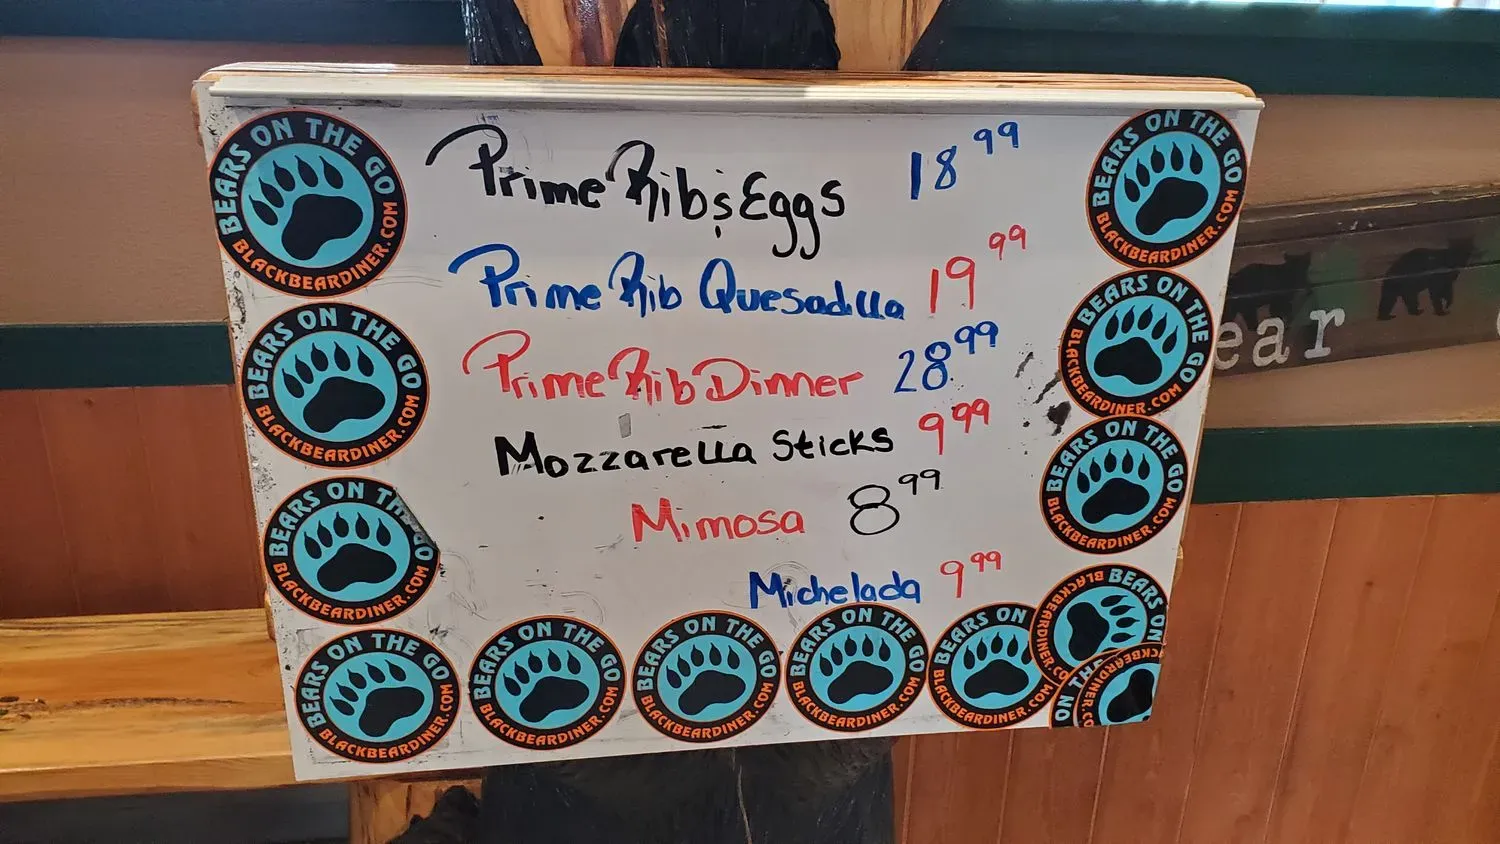 Prime Rib & Eggs 18.99
Prime Rib Quesadilla 19.99
Prime Rib Dinner 28.99
Mozzarella Sticks 9.99
Mimosa 8.99
Michelada 9.99
BEARS ON THE GO
BLACKBEARDINER.COM
BEARS ON THE GO
BLACKBEARDINER.COM
BEARS ON THE GO
BLACKBEARDINER.COM
BEARS ON THE GO
BLACKBEARDINER.COM
BEARS ON THE GO
BLACKBEARDINER.COM
BEARS ON THE GO
BLACKBEARDINER.COM
BEARS ON THE GO
BLACKBEARDINER.COM
BEARS ON
BLACKBEARDINER.COM
BEARS ON
BLACKBEARDINER.CO
ON TH
BLACKBEARDINER.CO
BEARS ON THE GO
BLACKBEARDINER.COM
BEARS ON THE GO
BLACKBEARDINER.COM
BEARS ON THE GO
BLACKBEARDINER.COM
ear